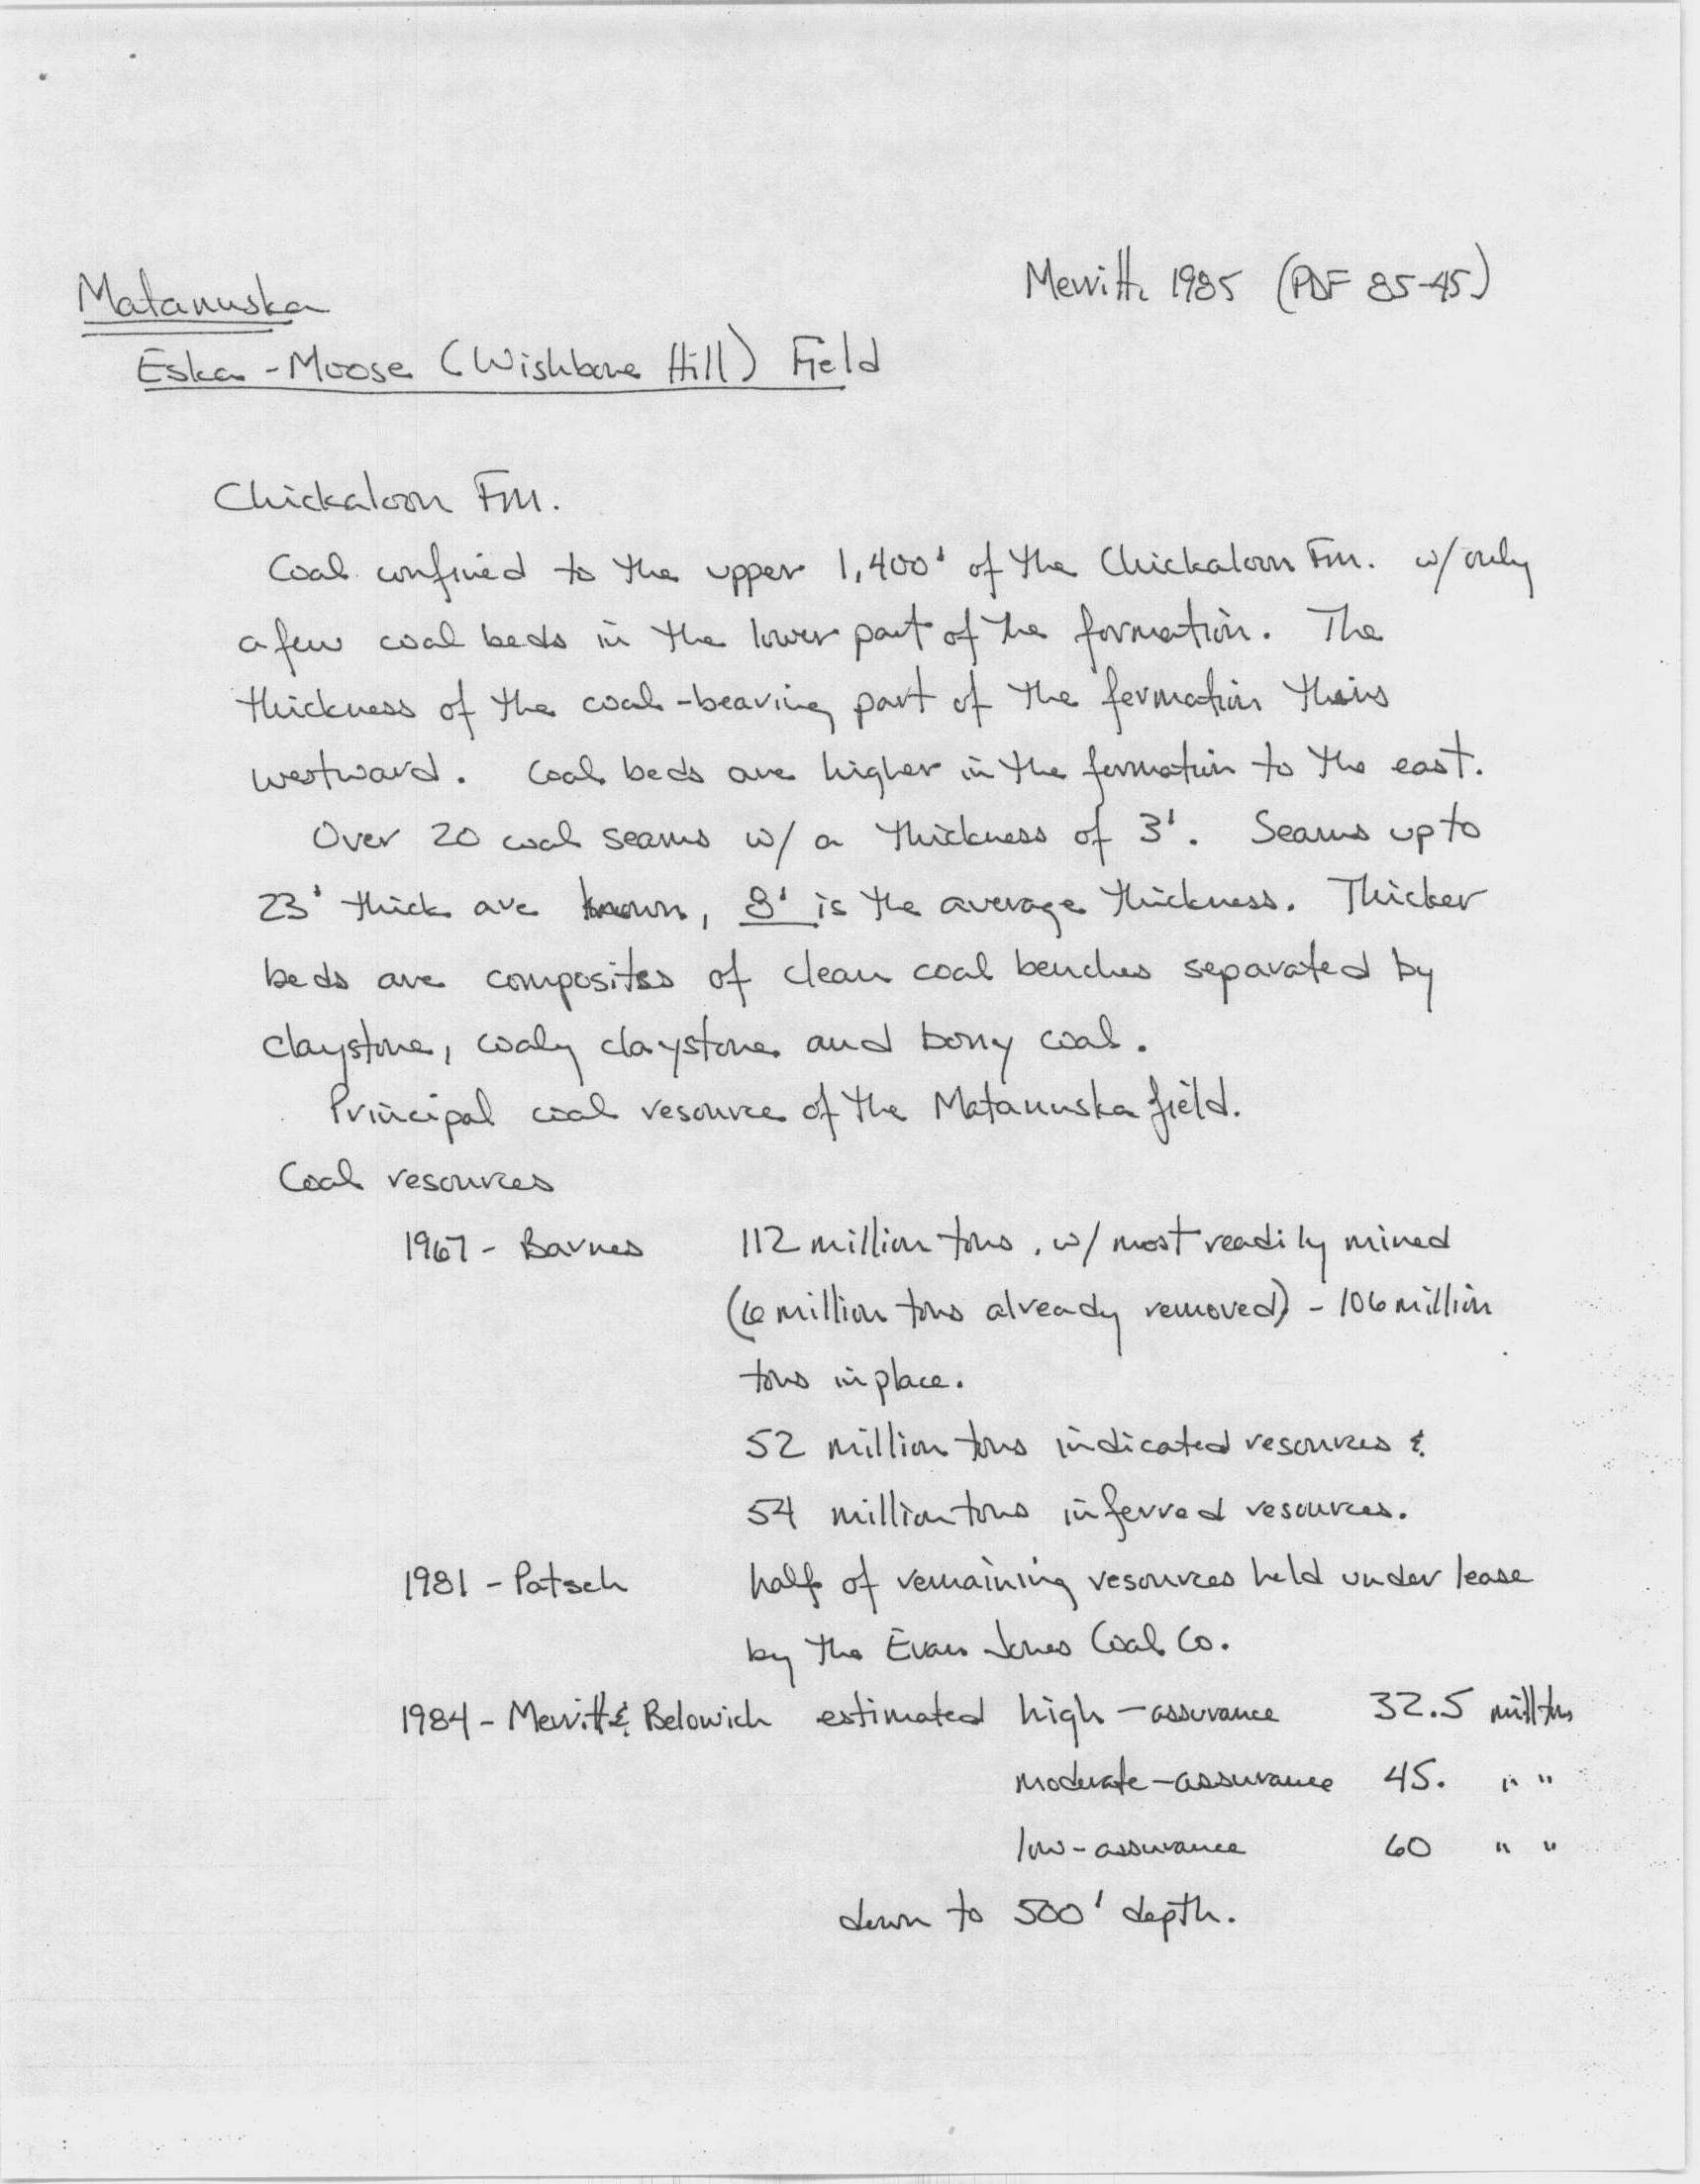 Matanuska
Merritt 1985 (PDF 85-45)
Eska-Moose (Wishbone Hill) Field
Chickaloon Fm.
Coal confined to the upper 1,400' of the Chickaloon Fm. w/ only
a few coal beds in the lower part of the formation. The
thickness of the coal-bearing part of the formation thins
westward. Coal beds are higher in the formation to the east.
Over 20 coal seams w/ a thickness of 3'. Seams up to
23' thick are known, 8' is the average thickness. Thicker
beds are composites of clean coal benches separated by
claystone, coaly claystone and bony coal.
Principal coal resource of the Matanuska field.
Coal resources
1967 - Barnes 112 million tons, w/ most readily mined
(6 million tons already removed) - 106 million
tons in place.
52 million tons indicated resources &
54 million tons inferred resources.
1981 - Patsch half of remaining resources held under lease
by the Evan Jones Coal Co.
1984 - Merritt & Belowich estimated high-assurance 32.5 mill tns
moderate-assurance 45. " "
low-assurance 60 " "
down to 500' depth.